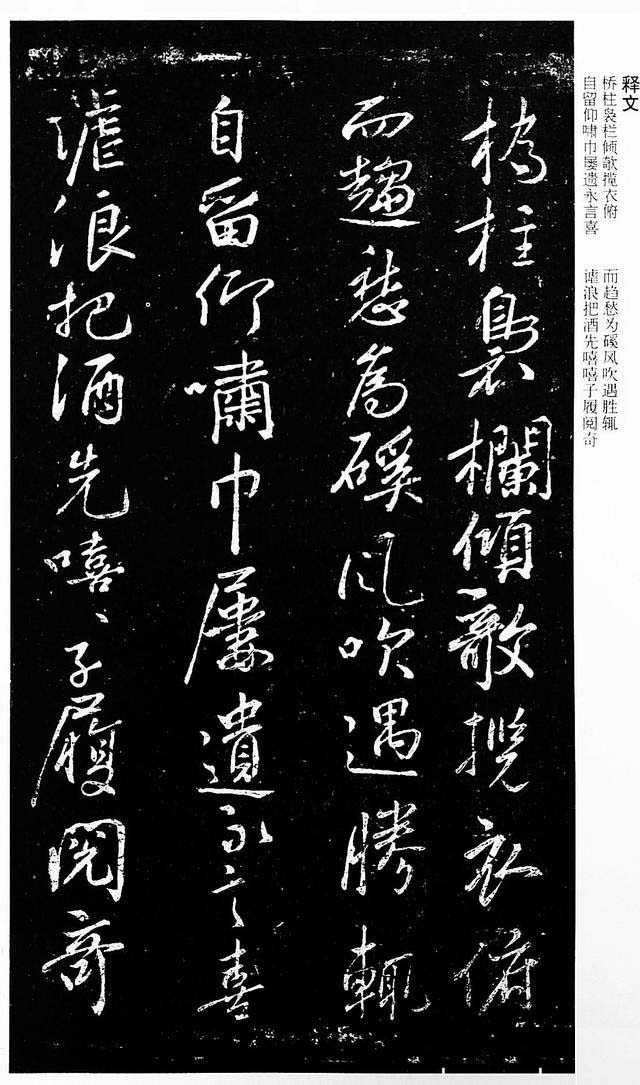 释文
桥柱袅栏倾欹揽衣俯
而趋愁为磎风吹遇胜辄
自留仰啸巾屡遗永言喜
谑浪把酒先嘻嘻子履阅奇
橋柱裊欄傾欹攬衣俯
而趨愁為磎風吹遇勝輒
自留仰嘯巾屢遺永言喜
謔浪把酒先嘻々子履閱奇